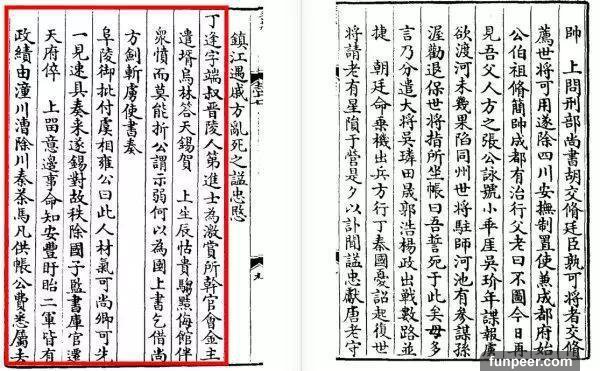 帥　上問刑部尚書胡交脩廷臣孰可將者交脩
薦世將可用遂除四川安撫制置使兼成都府始
公伯祖脩簡帥成都有治行父老曰不圖今日再
見吾父人方之張公詠號小乖崖吳玠年諜報虜
欲渡河未幾果陷同州世將駐師河池有參謀孫
渥勸退保世將指所坐帳曰吾誓死于此矣毋多
言乃分遣大將吳璘田晟郭浩楊政出戰數路並
捷　朝廷命乗機出兵方行丁秦國憂詔起復世
將請老有星隕于營是夕以訃聞謚忠獻唐老守
鎮江遇戚方亂死之謚忠愍
丁逢字端叔晉陵人第進士為激賞所幹官會金主
遣壻烏林荅天錫賀　上生辰怙貴驕黠侮館伴
衆憤而莫能折公謂示弱何以為國上書乞借尚
方劍斬虜使書奏
阜陵御批付虞相雍公曰此人材氣可尚卿可先
一見速具奏来遂錫對故秩除國子監書庫官遷
天府倅　上留意邊事命知安豐盱眙二軍皆有
政績由潼川漕除川秦茶馬凡供帳公費悉屬去
funpeer.com